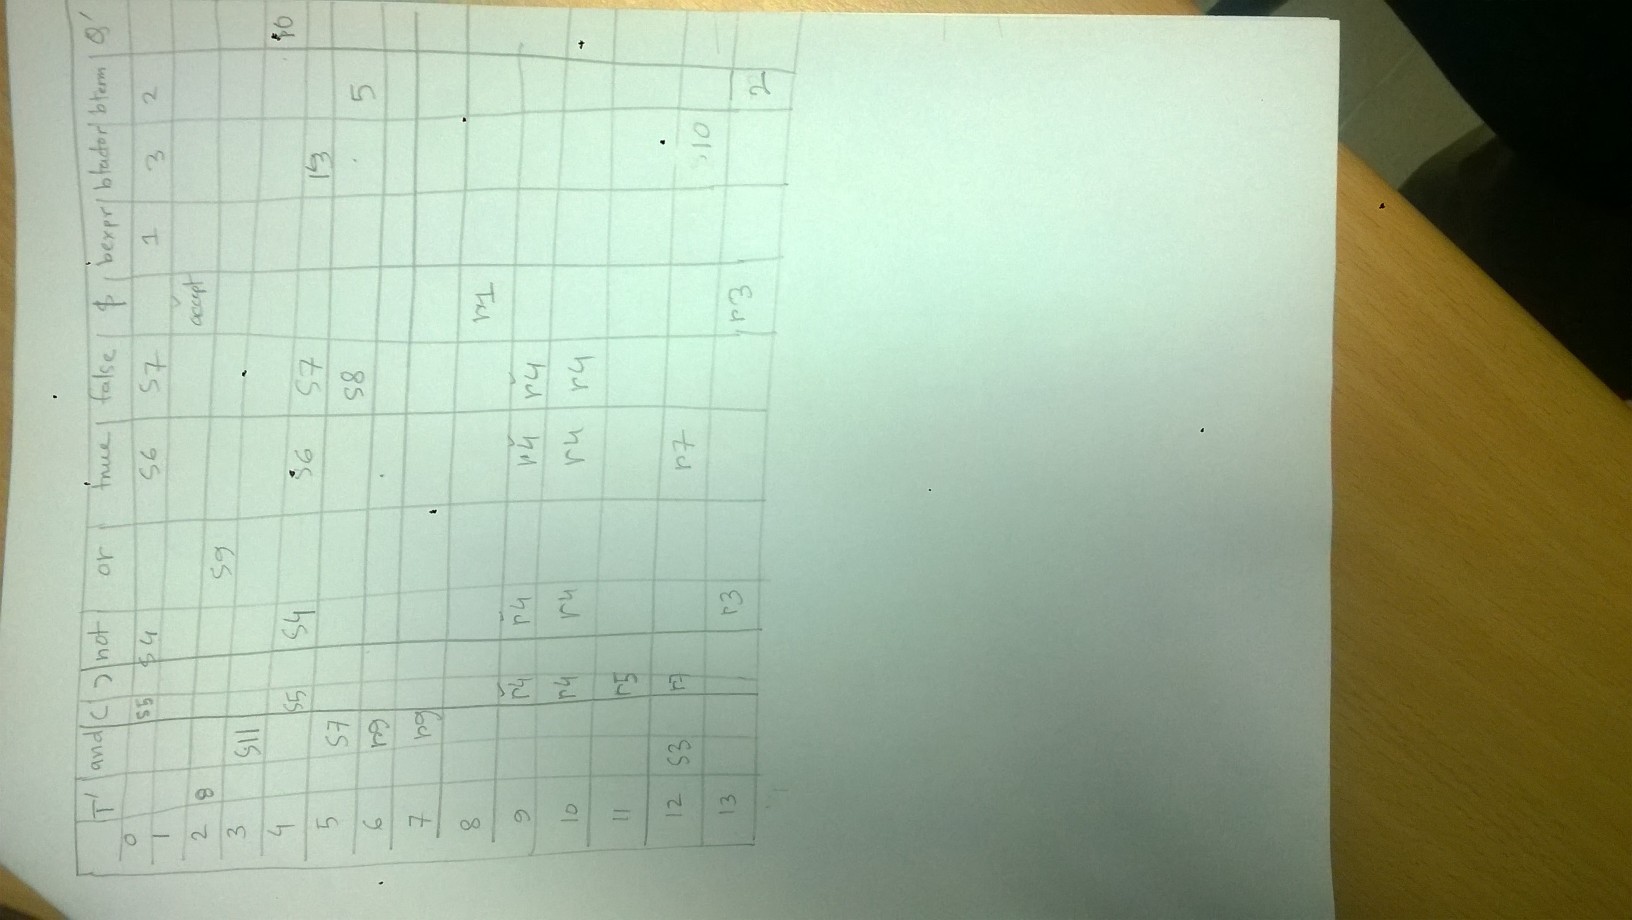 T' and ( ) not or true false $ bexpr bfactor bterm Q'
0 S5 S4 S6 S7 1 3 2
1 accept
2 8 S9
3 S11
4 S5 S4 S6 S7
5 S7 13
6 r9 S8 5
7 r9
8 r1
9 r4 r4 r4 r4
10 r4 r4 r4 r4
11 r5
12 S3 r7 10
13 r3 r3 2